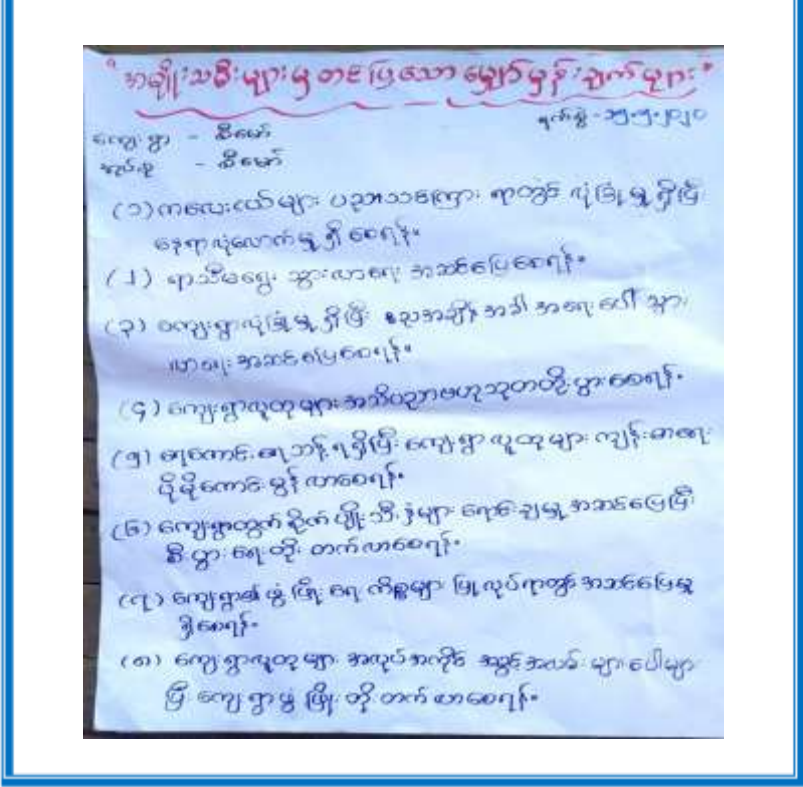 "အမျိုးသမီးများမှ တင်ပြသော မျှော်မှန်းချက်များ"
ရက်စွဲ - ၁၅.၅.၂၀၂၀
ကျေးရွာ - ဆီမော်
အုပ်စု - ဆီမော်
(၁) ကလေးငယ်များ ပညာသင်ကြားရာတွင် လုံခြုံမှု ရှိပြီး
နေရာလုံလောက်မှု ရှိစေရန်။
(၂) ရာသီမရွေး သွားလာရေး အဆင်ပြေစေရန်။
(၃) ကျေးရွာလုံခြုံမှု ရှိပြီး ညအချိန်အခါ အရေးပေါ် သွား
လာရေး အဆင်ပြေစေရန်။
(၄) ကျေးရွာလူထုများ အသိပညာဗဟုသုတတိုးပွားစေရန်။
(၅) ရေကောင်းရေသန့် ရရှိပြီး ကျေးရွာလူထုများ ကျန်းမာရေး
ပိုမိုကောင်းမွန်လာစေရန်။
(၆) ကျေးရွာထွက် စိုက်ပျိုးသီးနှံများ ရောင်းချမှု အဆင်ပြေပြီး
စီးပွားရေးတိုးတက်လာစေရန်။
(၇) ကျေးရွာ၏ ဖွံ့ဖြိုးရေး ကိစ္စများ ပြုလုပ်ရာတွင် အဆင်ပြေမှု
ရှိစေရန်။
(၈) ကျေးရွာလူထုများ အလုပ်အကိုင် အခွင့်အလမ်းများ ပေါများ
ပြီး ကျေးရွာဖွံ့ဖြိုးတိုးတက်လာစေရန်။